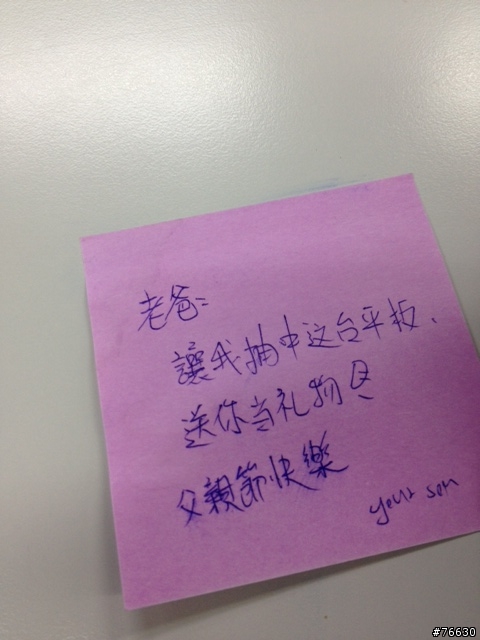 老爸:
讓我抽中这台平板、
送你当礼物
父親節快樂
your son
#76630